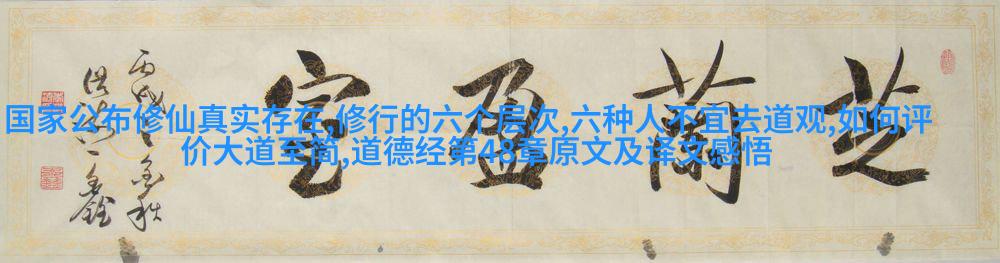 国家公布修仙真实存在,修行的六个层次,六种人不宜去道观,如何评
价大道至简,道德经第48章原文及译文感悟
芝蘭盈室
丙戌之金秋